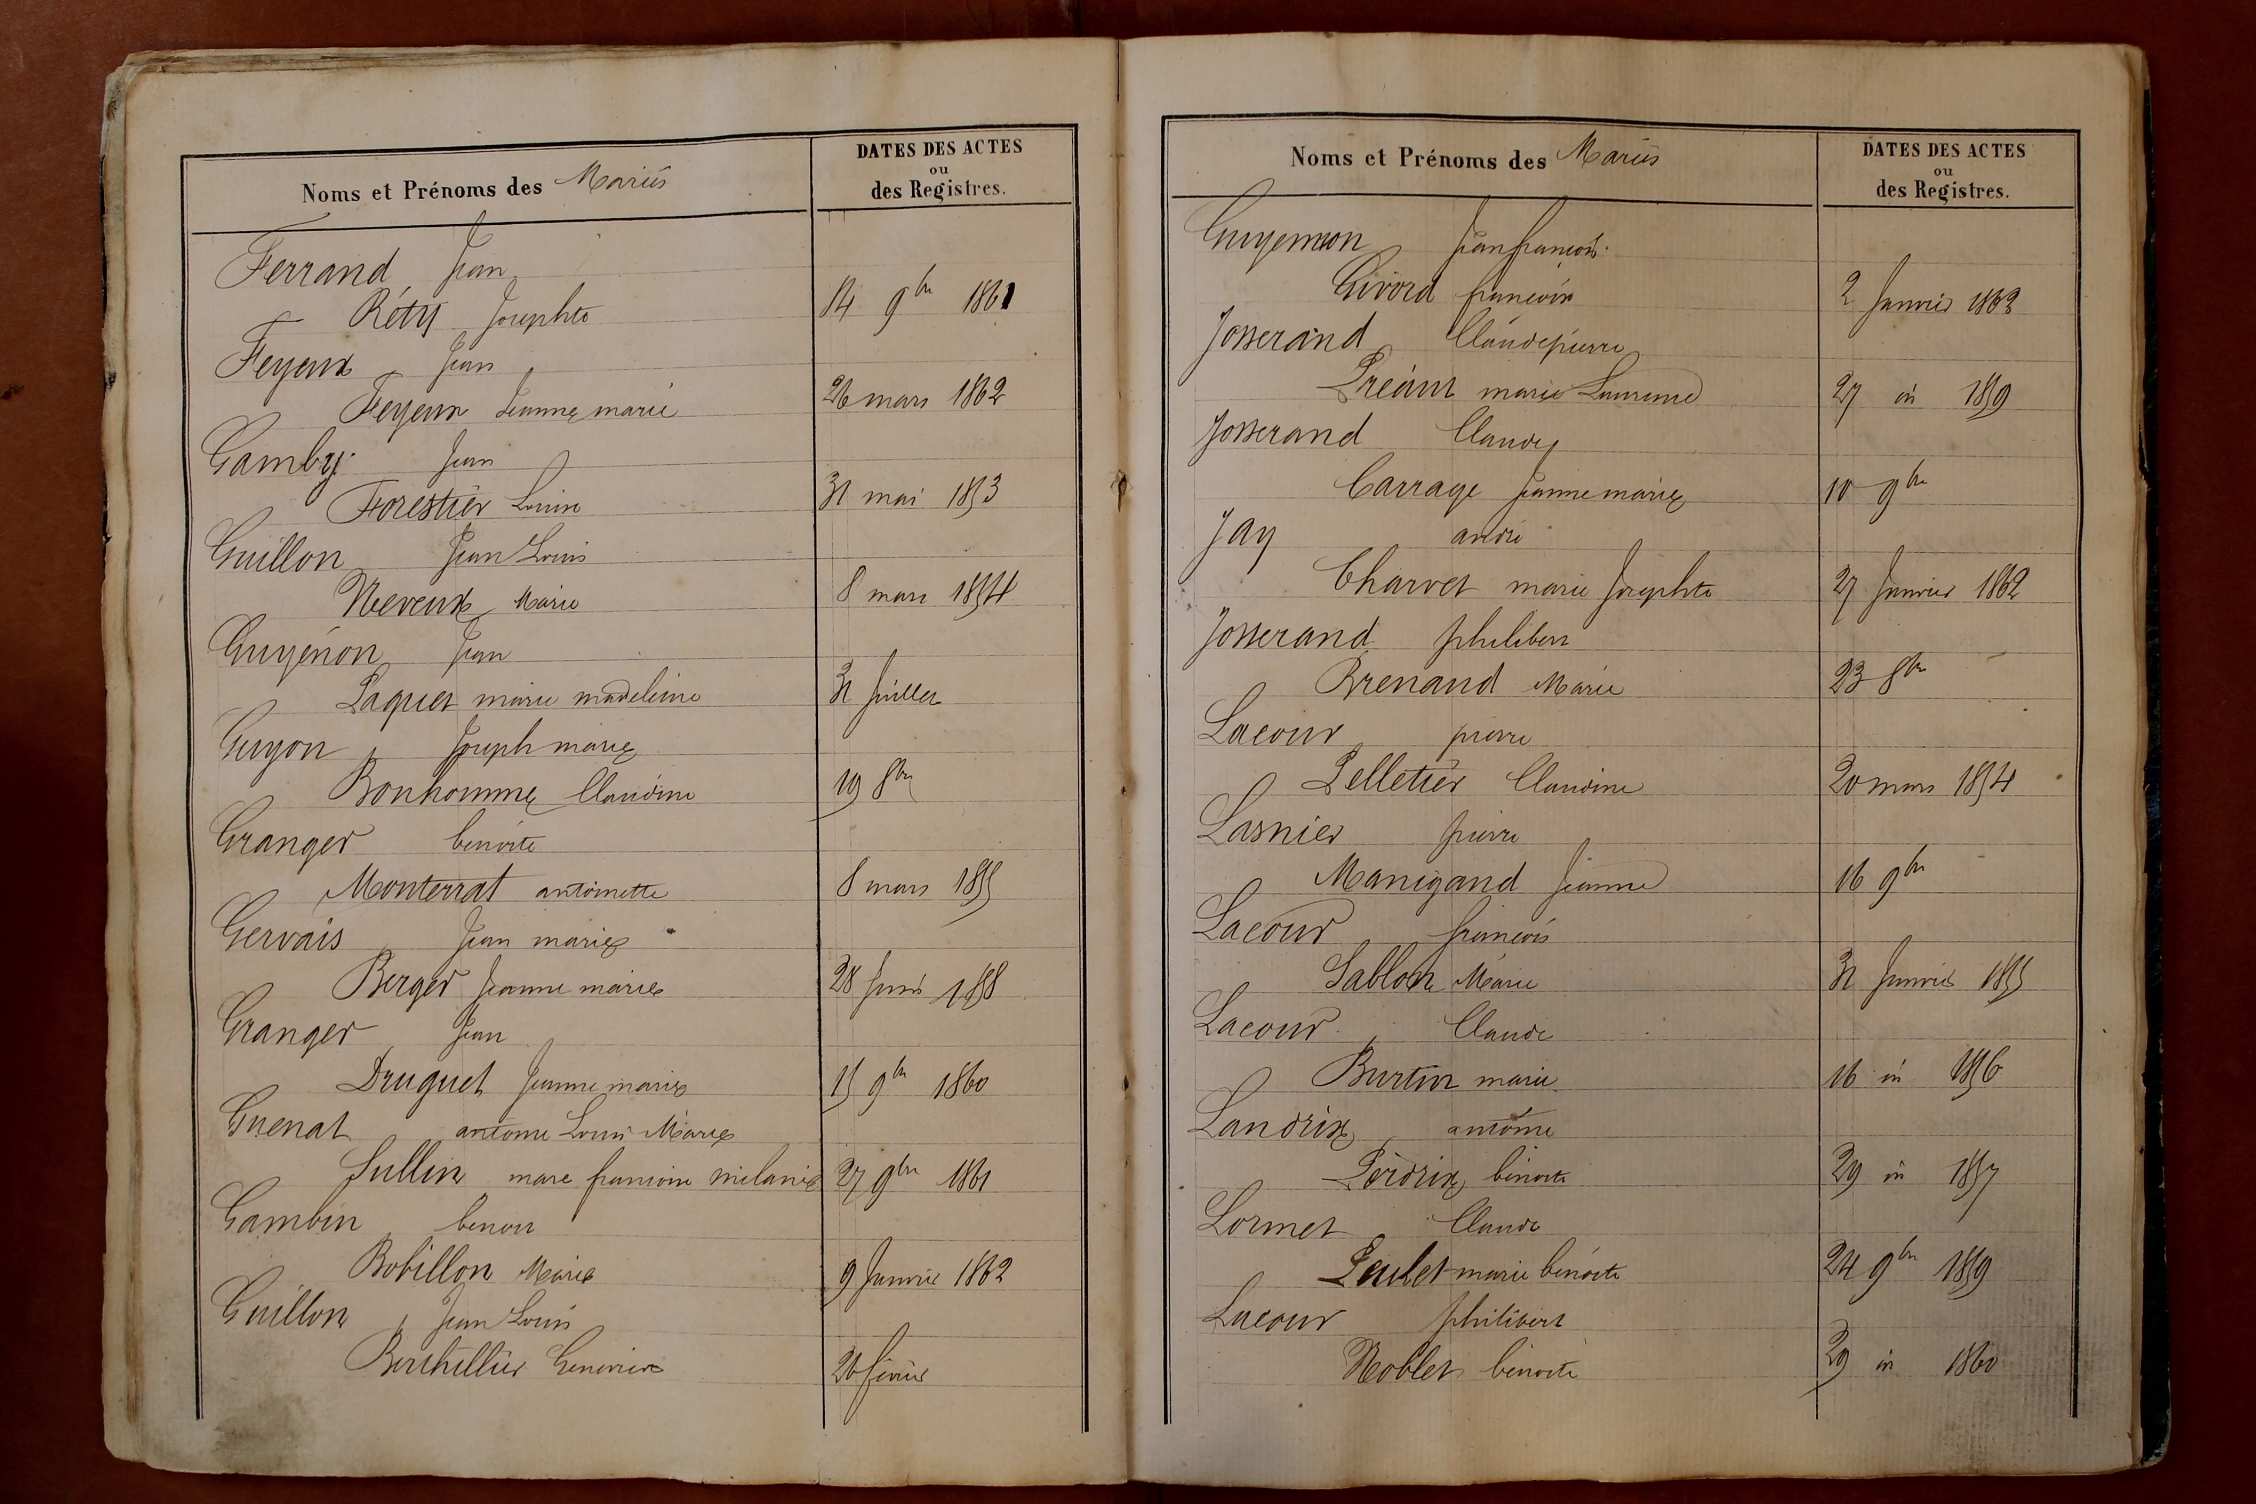 Noms et Prénoms des Mariés
DATES DES ACTES
ou
des Registres.
Ferrand Jean
Réty Josephte 14 9bre 1861
Feyeux Jean
Feyeux Jeanne marie 26 mars 1862
Gamby Jean
Forestier Louise 31 mai 1853
Guillon Jean Louis
Neveux Marie 8 mars 1854
Guyénon Jean
Paquet marie madeleine 31 Juillet
Guyon Joseph marie
Bonhomme Claudine 19 8bre
Granger benoite
Monterrat antoinette 8 mars 1855
Gervais Jean marie
Berger Jeanne marie 28 Juin 1858
Granger Jean
Druguet Jeanne marie 15 9bre 1860
Guenat antoine Louis Marie
Jullin marie francoise mélanie 27 9bre 1861
Gambin benoit
Bobillon Marie 9 Janvier 1862
Guillon Jean Louis
Berthillier Genevieve 26 février
Noms et Prénoms des Mariés
DATES DES ACTES
ou
des Registres.
Guyennon Jean françois
Givord françoise 2 Janvier 1862
Josserand Claude pierre
Préaut marie Laurence 27 id 1859
Josserand Claude
Carrage Jeanne marie 10 9bre
Jay andré
Charvet marie Josephte 27 Janvier 1862
Josserand philibert
Brenand Marie 23 8bre
Lacour pierre
Pelletier Claudine 20 mars 1854
Lasnier pierre
Manigand Jeanne 16 9bre
Lacour françois
Sablon Marie 31 Janvier 1855
Lacour Claude
Burtin marie 16 id 1856
Landrix antoine
Perdrix benoite 29 id 1857
Lormet Claude
Peulet marie benoite 24 9bre 1859
Lacour philibert
Noblet benoite 29 id 1860